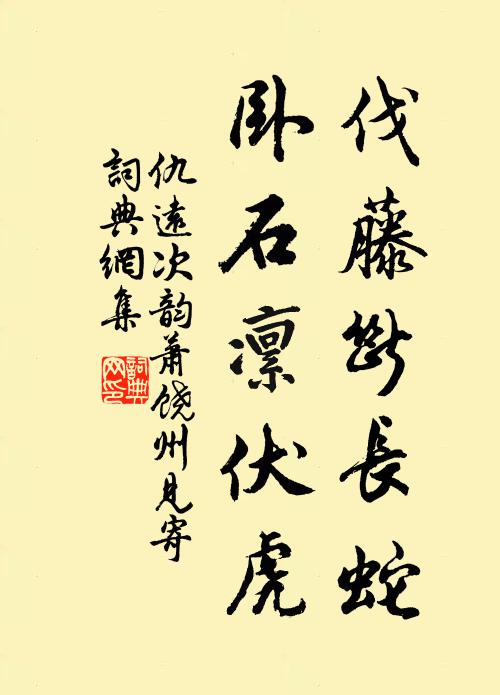 伐藤斷長蛇
卧石凛伏虎
仇遠次韵萧饶州見寄
詞典網集
詞典网印